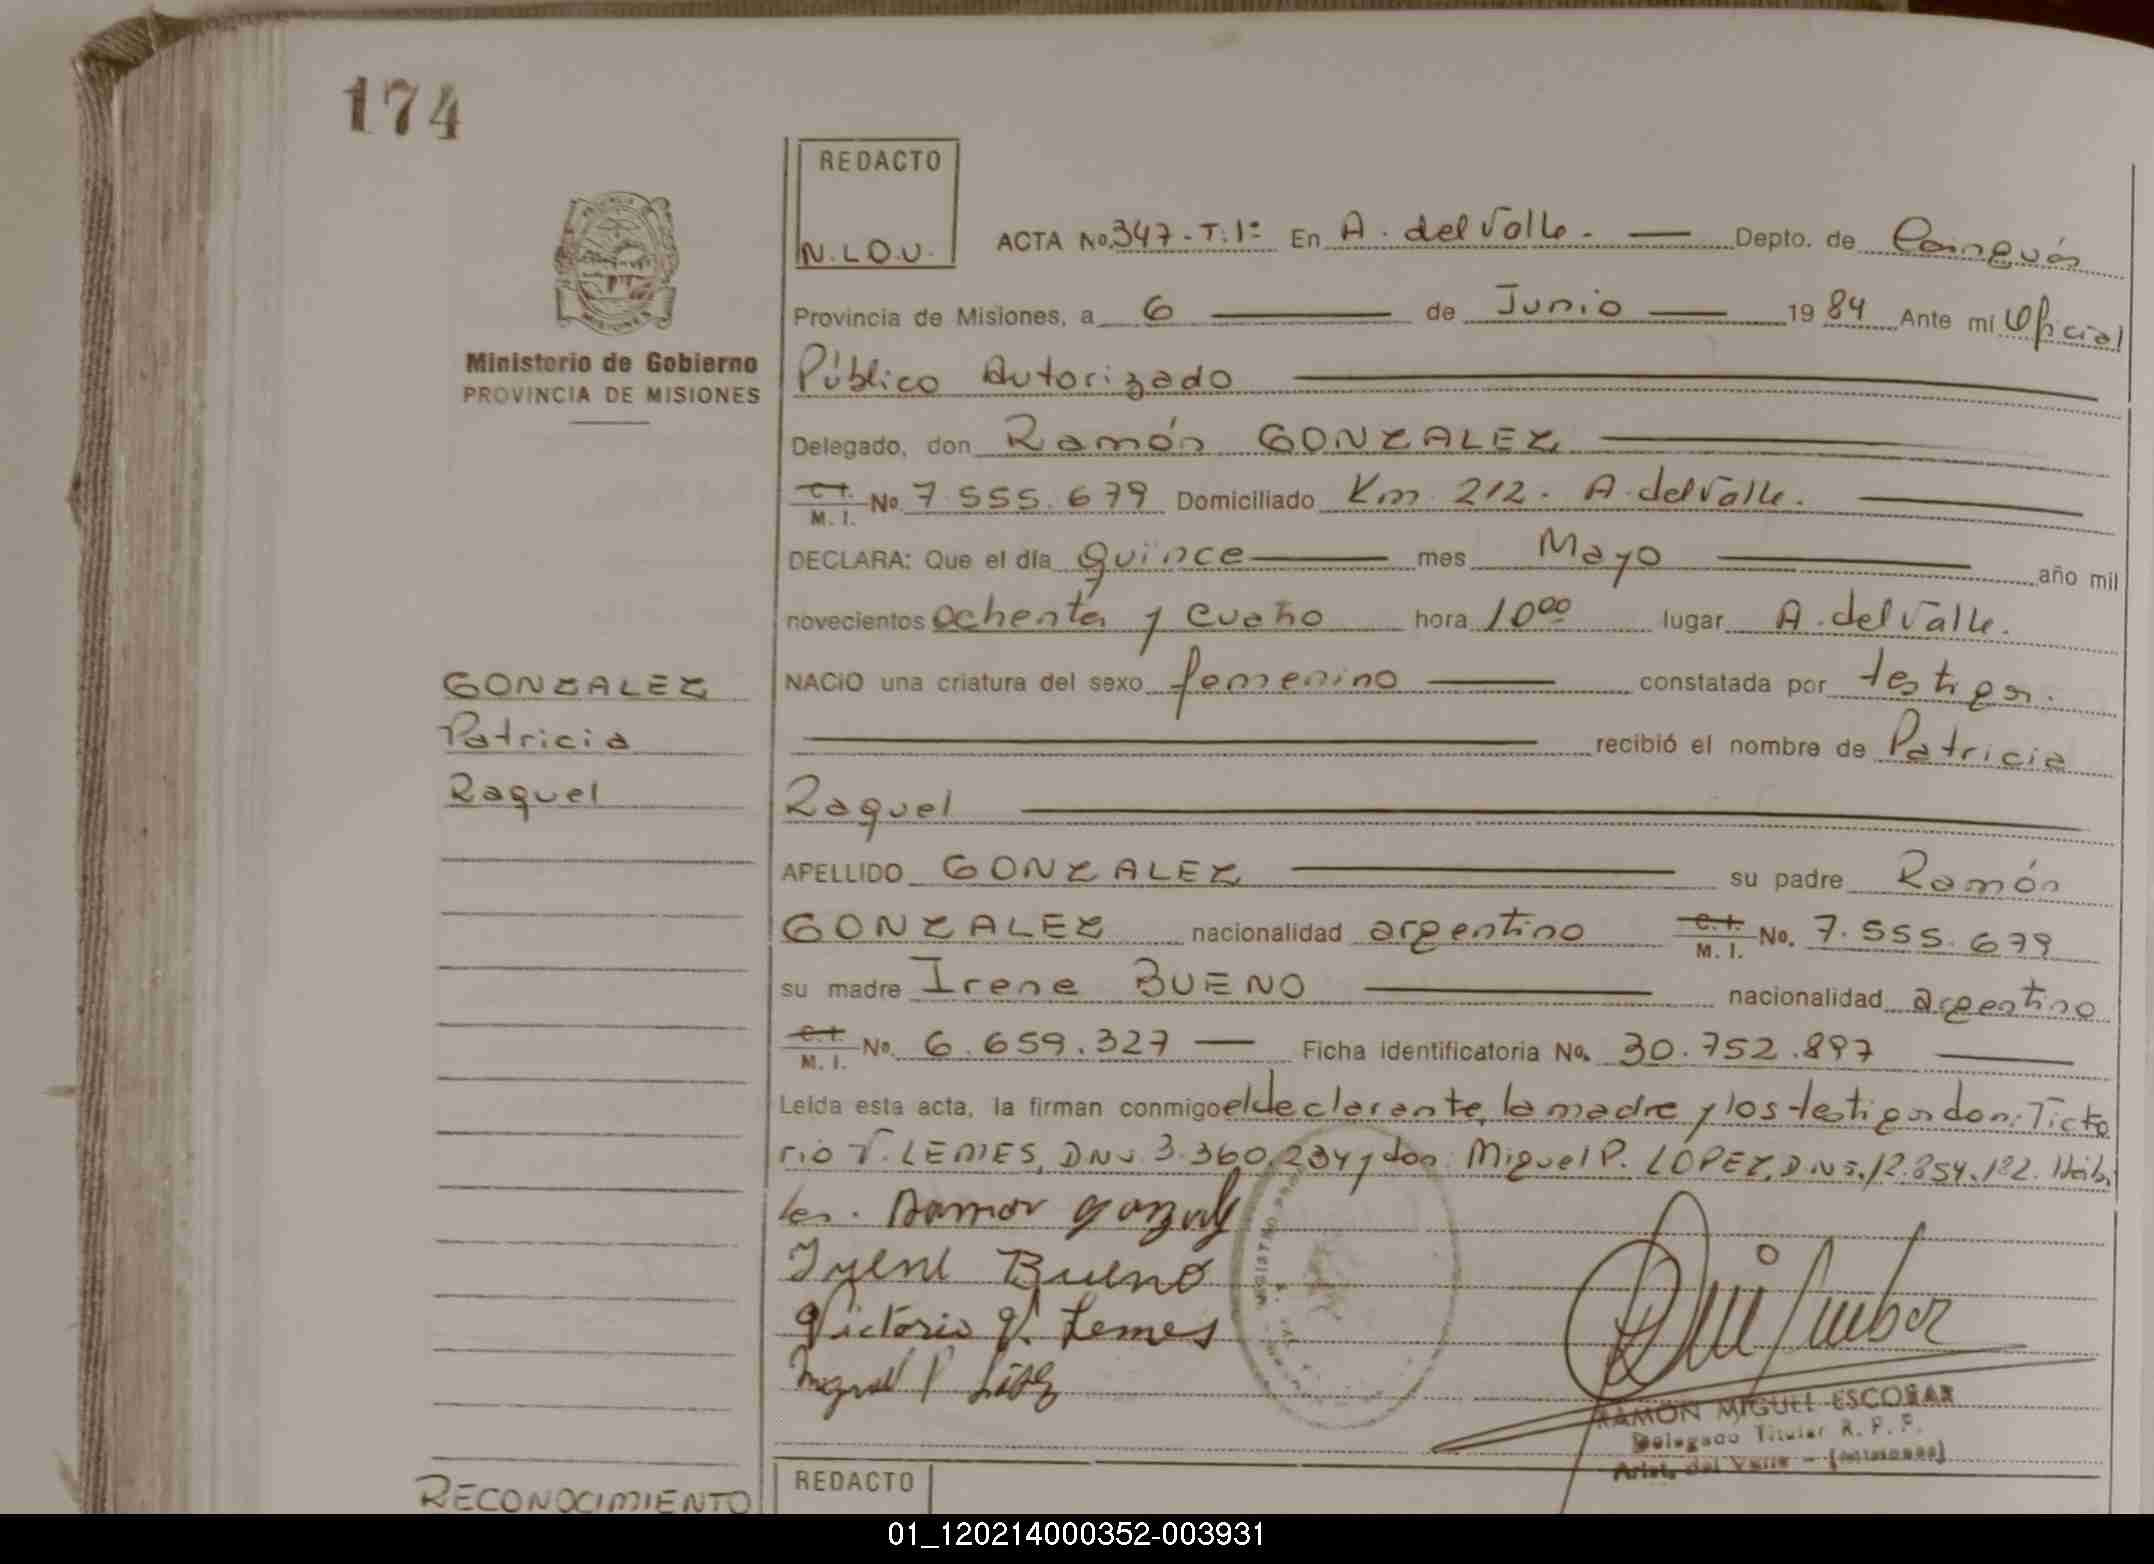 174
REDACTO
N.L.O.U.
ACTA No. 347 - T. 1º En A. del Valle. Depto. de Cainguás
Provincia de Misiones, a 6 de Junio 1984 Ante mi Oficial
Ministerio de Gobierno
PROVINCIA DE MISIONES
Público Autorizado
Delegado, don Ramón GONZALEZ
C.I. M.I. No. 7.555.679 Domiciliado Km 212. A. del Valle.
DECLARA: Que el día quince mes Mayo año mil
novecientos ochenta y cuatro hora 10⁰⁰ lugar A. del Valle.
GONZALEZ
NACIO una criatura del sexo femenino constatada por testigos.
Patricia
recibió el nombre de Patricia
Raquel
Raquel
APELLIDO GONZALEZ su padre Ramón
GONZALEZ nacionalidad argentino C.I. M.I. No. 7.555.679
su madre Irene BUENO nacionalidad argentino
C.I. M.I. No. 6.659.327 Ficha identificatoria No. 30.752.897
Leida esta acta, la firman conmigo el declarante, la madre y los testigos don: Victo
rio V. LEMES, DNI 3.360.234 y don: Miguel P. LOPEZ, D.N.I. 12.854.182. Hábi
les. Ramon
Irene Bueno
Victorio V. Lemes
Miguel P
RAMON MIGUEL ESCOBAR
Delegado Titular R. P. P.
Arist. del Valle - (Misiones)
RECONOCIMIENTO
REDACTO
01_120214000352-003931